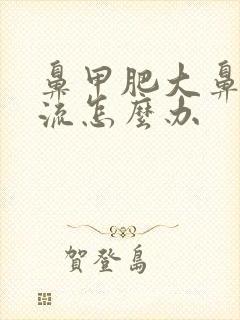 鼻甲肥大鼻
流怎麼办
賀登島